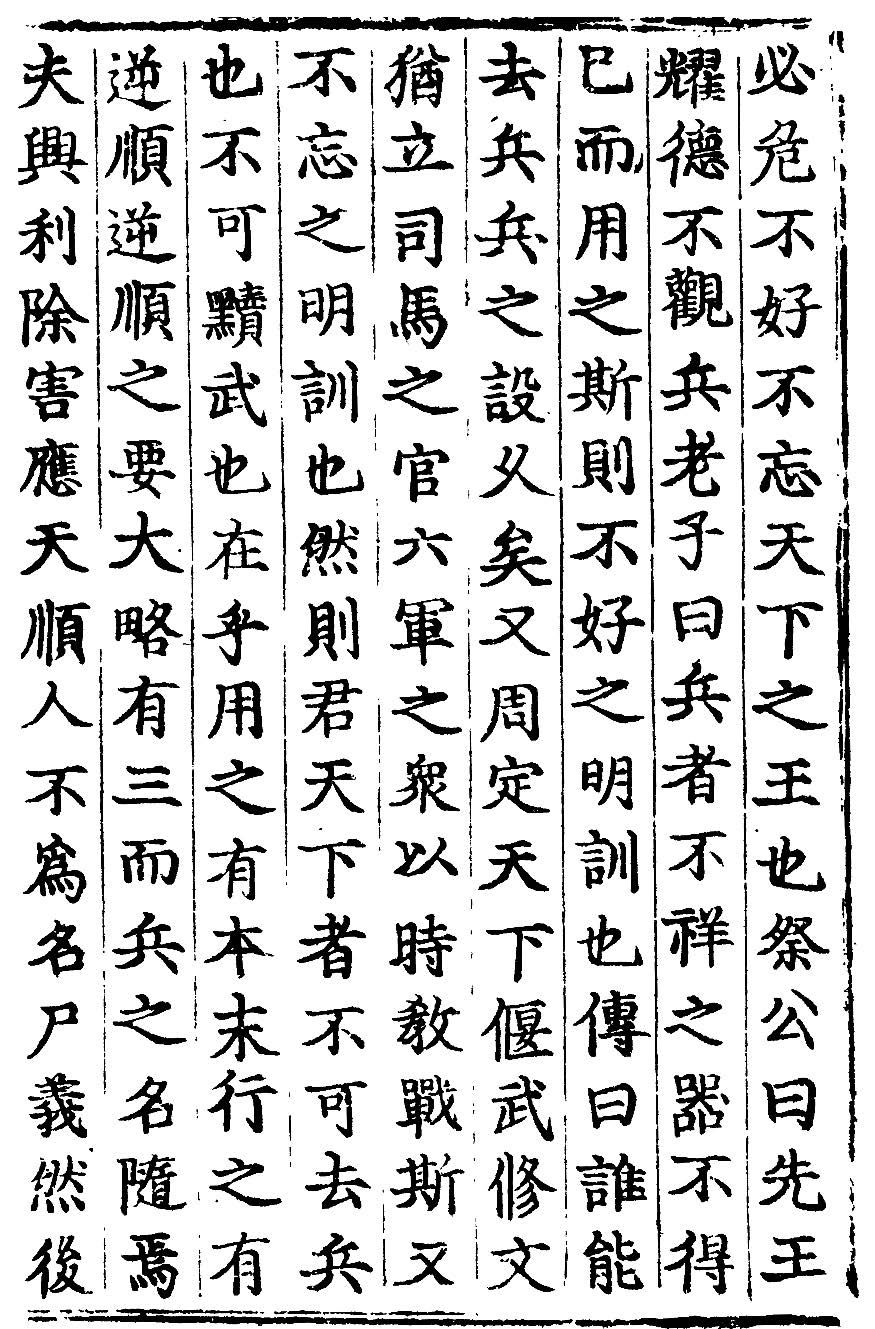 必危不好不忘天下之王也祭公曰先王
耀德不觀兵老子曰兵者不祥之器不得
已而用之斯則不好之明訓也傳曰誰能
去兵兵之設久矣又周定天下偃武修文
猶立司馬之官六軍之衆以時教戰斯又
不忘之明訓也然則君天下者不可去兵
也不可黷武也在乎用之有本末行之有
逆順逆順之要大略有三而兵之名隨焉
夫興利除害應天順人不爲名尸義然後